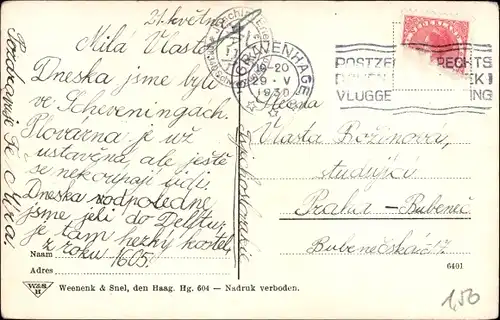 21. května
Milá Vlasto
Dneska jsme byli
ve Scheveningách.
Plovarna je už
ustavěna, ale ještě
se nekoupají lidi.
Dneska odpoledne
jsme jeli do Delftu,
je tam hezký kostel
z roku 1605.
Pozdravuje Tě Míra.
's GRAVENHAGE
19-20
29 V
1930
POSTZE RECHTS
BOVEN EK!
VLUGGE ING
NEDERLAND
Slečna
Vlasta Božinová,
studující
Praha-Bubeneč
Bubenečská č. 17
Tschechoslowakei
Naam
Adres
6401
W&S
H
Weenenk & Snel, den Haag. Hg. 604 – Nadruk verboden.
1,50